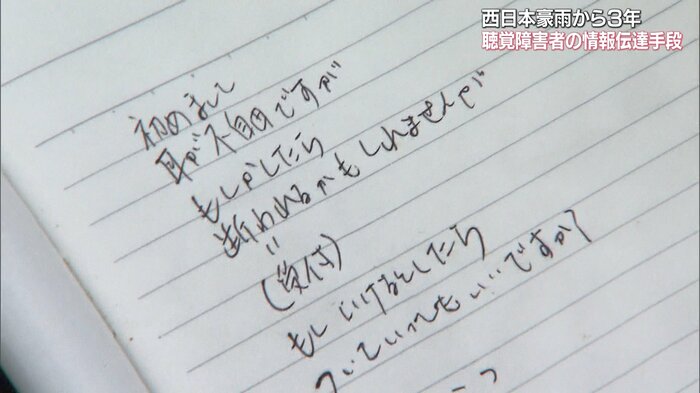 西日本豪雨から3年
聴覚障害者の情報伝達手段
初めまして
耳が不自由ですが
もしかしたら
断われるかもしれませんが
〃
(受付)
もしいけるとしたら
ついていってもいいですか？